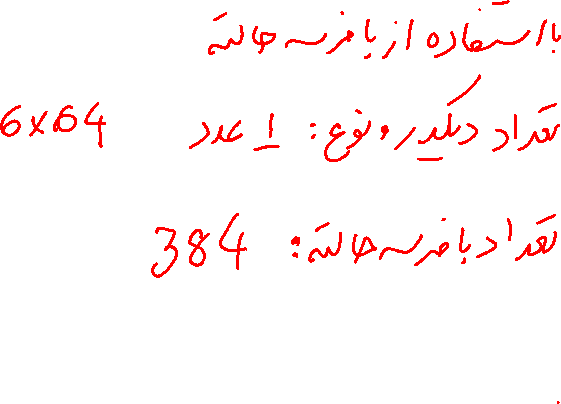 با استفاده از بافر سه حالته
تعداد دیکدر و نوع: ۱ عدد 6x64
تعداد بافر سه حالته: 384